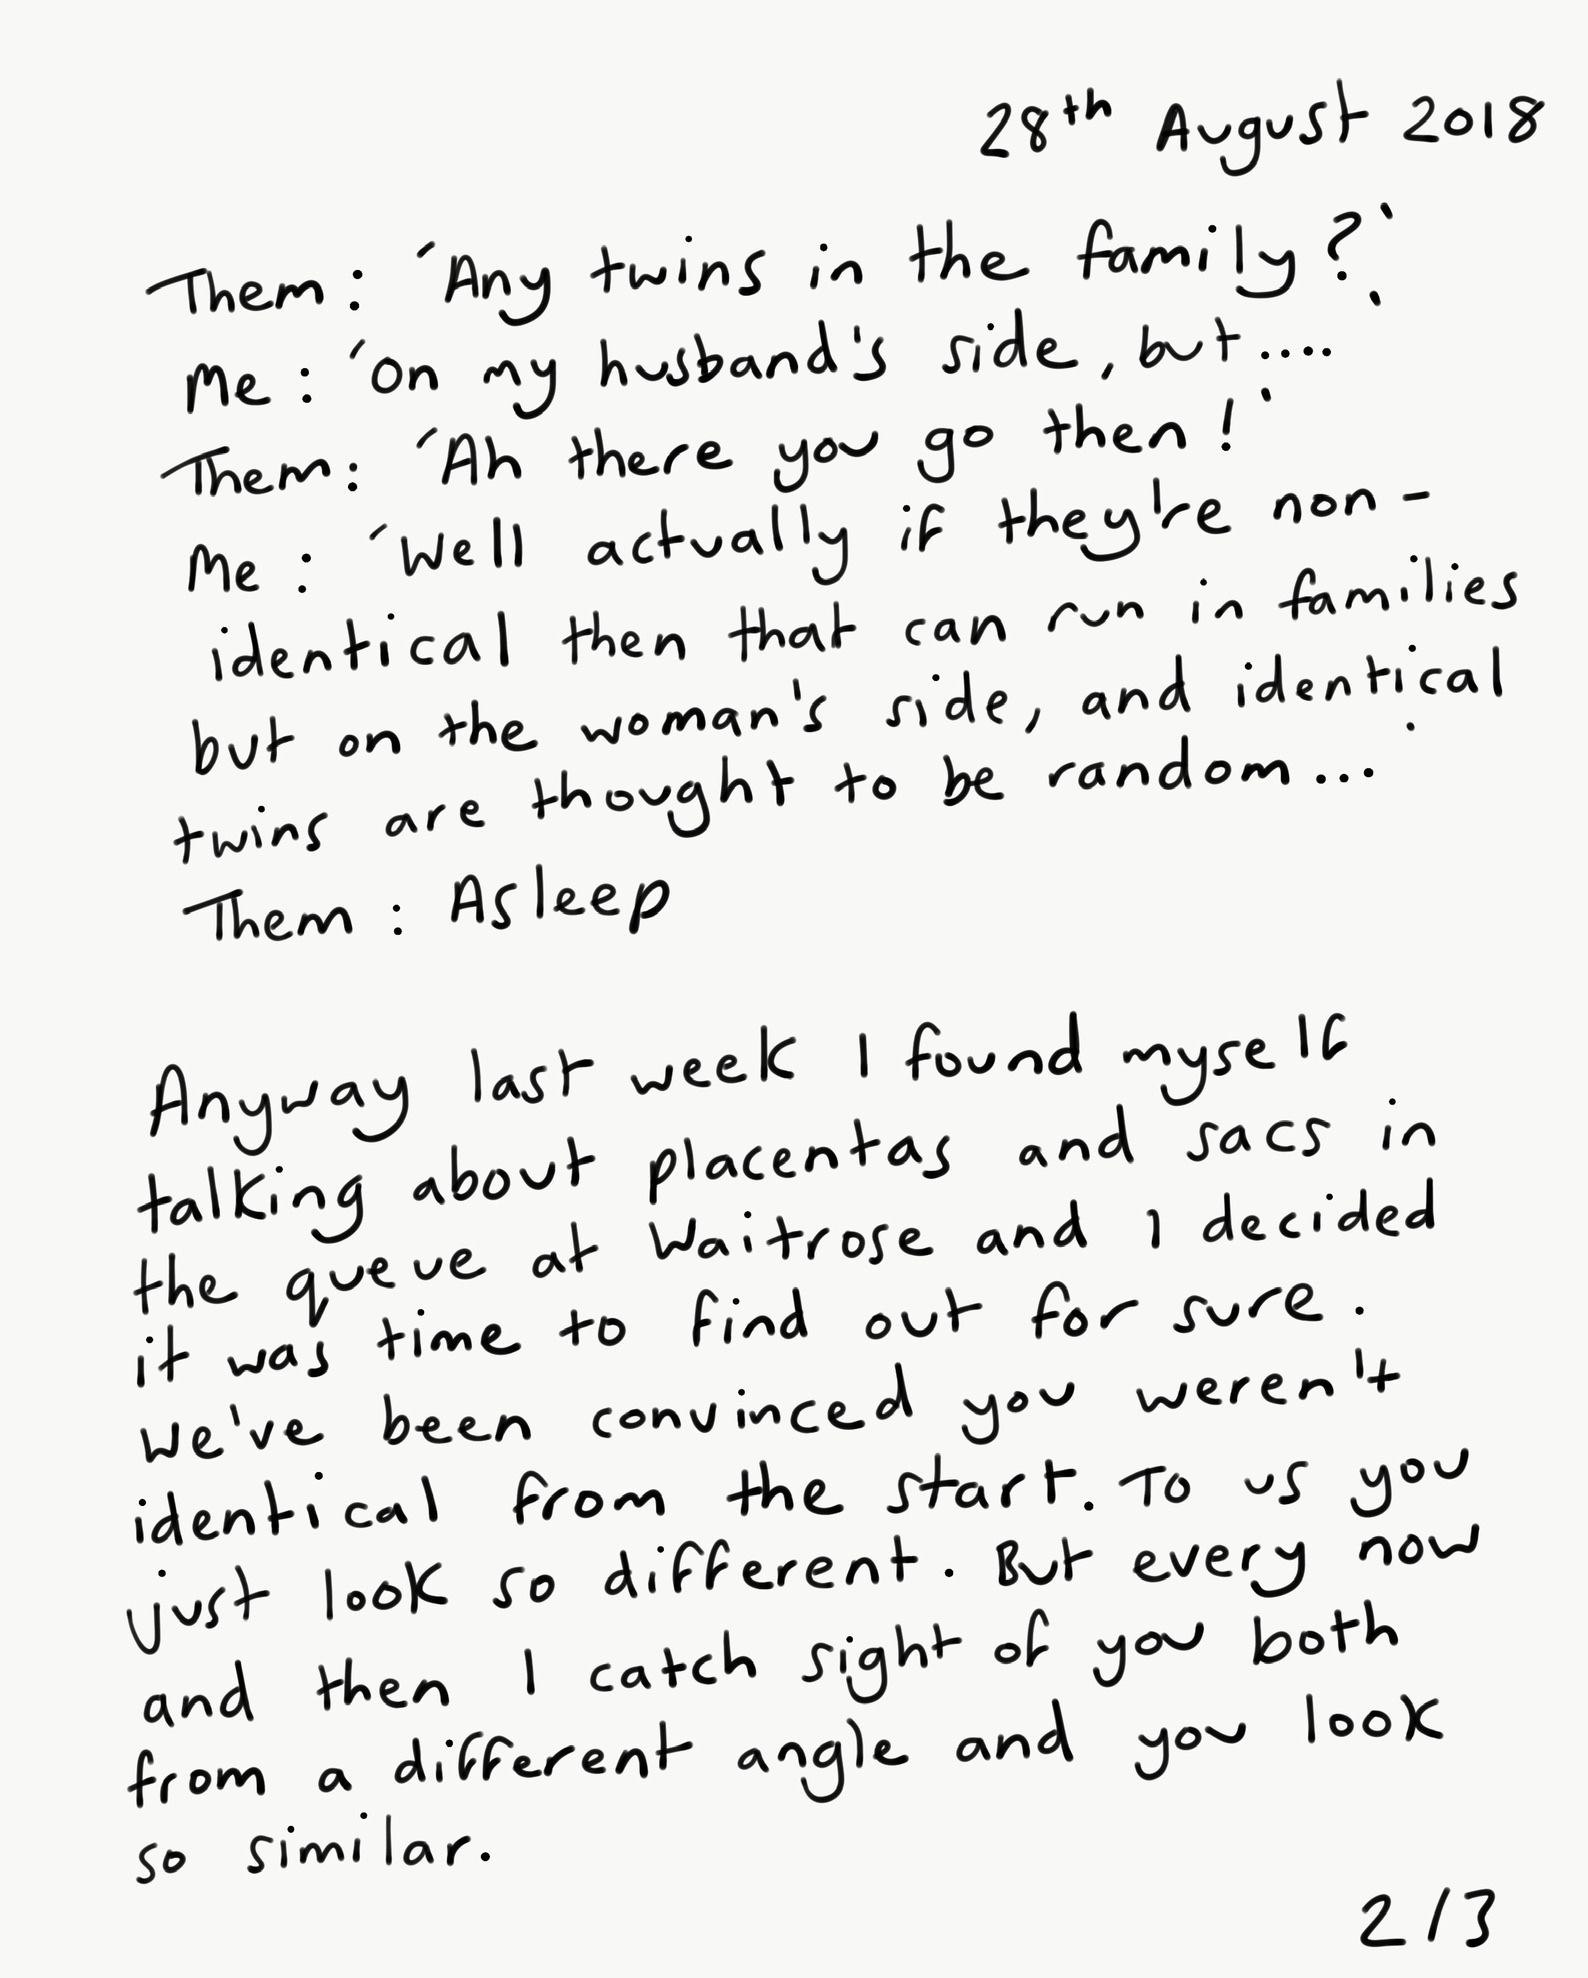 28th August 2018
Them: 'Any twins in the family?'
Me: 'On my husband's side, but....'
Them: 'Ah there you go then!'
Me: 'Well actually if they're non-
identical then that can run in families
but on the woman's side, and identical
twins are thought to be random...'
Them: Asleep
Anyway last week I found myself
talking about placentas and sacs in
the queue at Waitrose and I decided
it was time to find out for sure.
We've been convinced you weren't
identical from the start. To us you
just look so different. But every now
and then I catch sight of you both
from a different angle and you look
so similar.
2/3